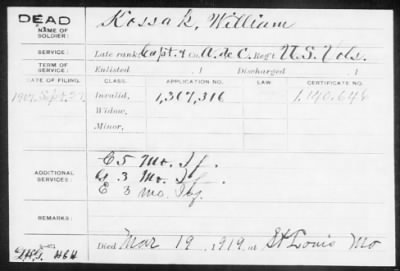 DEAD
NAME OF SOLDIER: Kossak, William
SERVICE: Late rank, Capt & A de C, Reg't U.S. Vols.
TERM OF SERVICE: Enlisted 1 Discharged 1
DATE OF FILING. CLASS. APPLICATION NO. LAW. CERTIFICATE NO.
1904 Sept. 27 Invalid, 1,307,316 1,140,648
Widow,
Minor,
ADDITIONAL SERVICES:
C 5 Mo. If.
G 3 Mo. If.
E 3 mo. Ify.
REMARKS:
Died Mar 19, 1919, at St Louis Mo